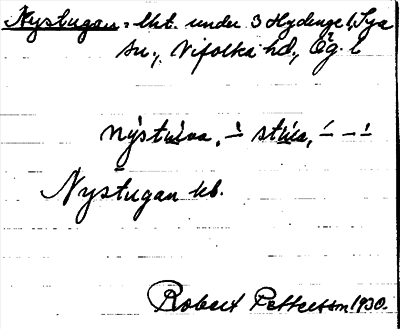 Nystugan, lht. under 3 Hydinge, Sya
sn., Vifolka hd, Ög. l
nýstúва, ∸ stúa, –́ – ∸
Nystugan kb.
Robert Pettersson 1930.